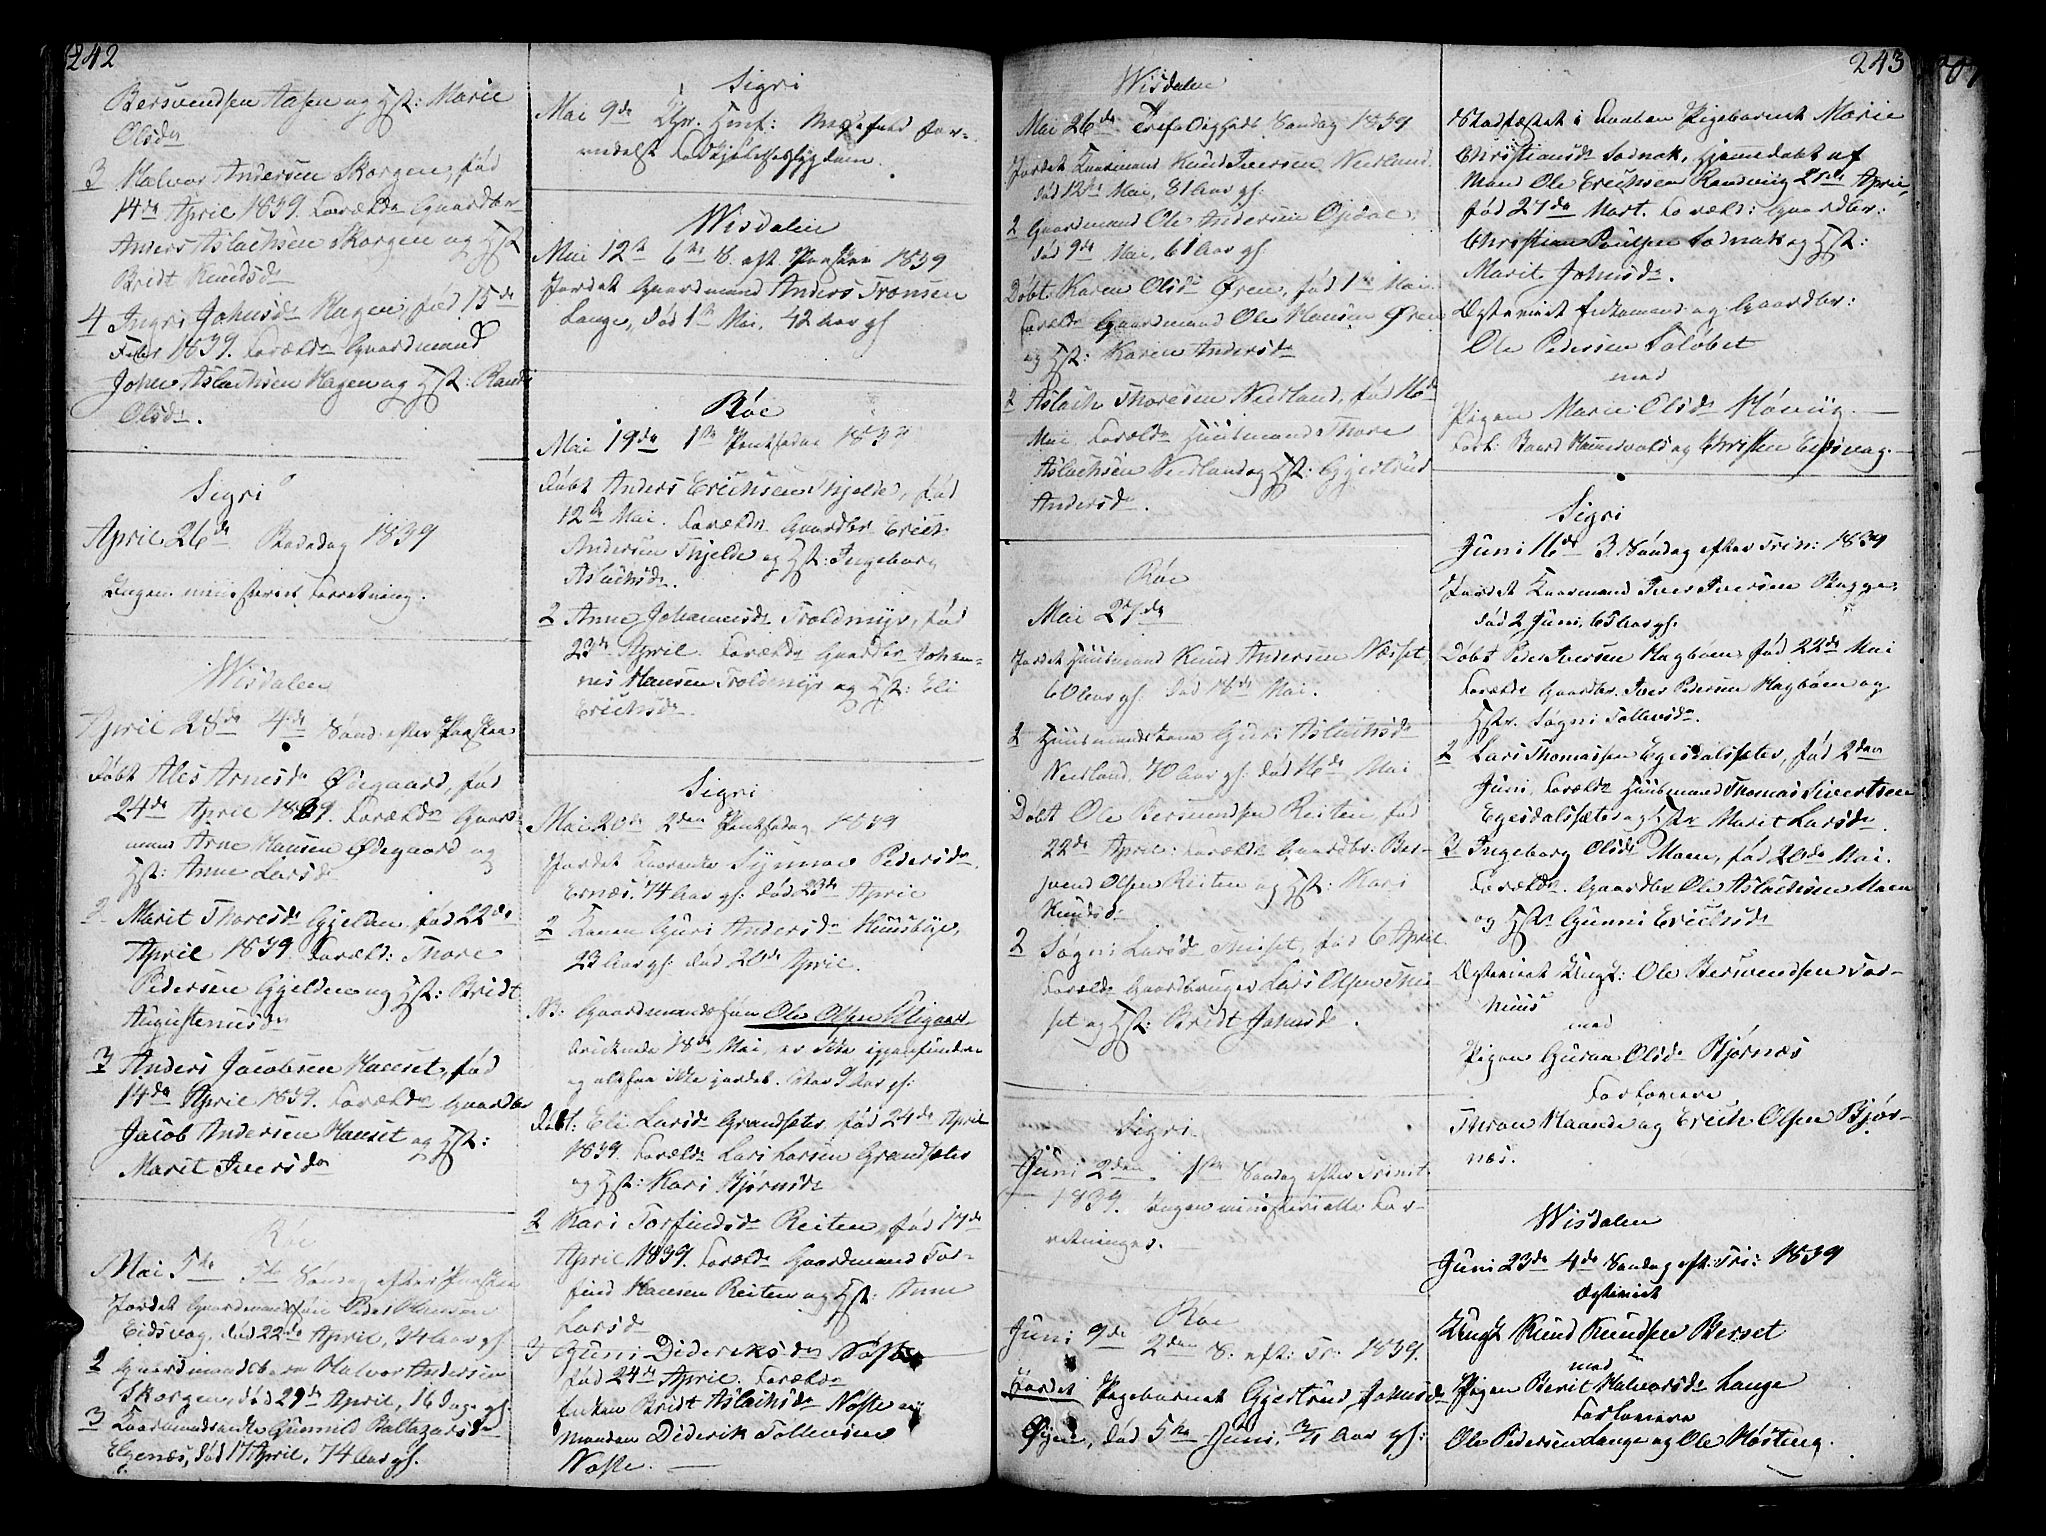 242
Bersvendsen Aasen og Hst: Marie
Olsdr
3 Halvor Andersen Skorgen, fød
14de April 1839. Foræld: Gaardbr
Anders Aslachsen Skorgen og Hst
Bridt Knudsdr
4 Ingri Johnsdr Hagen, fød 15de
Febr 1839. Foræld: Gaardmand
John Aslachsen Hagen og Hst: Randi
Olsdr.
Sigri
April 26de Bededag 1839
Ingen ministeriel Forretning.
Wisdalen
April 28de 4de Sønd. efter Paaske
Døbt Ales Arnesdr Ødegaard, fød
24de April 1839. Foræld: Gaard-
mand Arne Hansen Ødegaard og
Hst: Anne Larsdr
2 Marit Thoresdr Gjelden, fød 22de
April 1839. Foræld: Thore
Pedersen Gjelden og Hst: Bridt
Augustenusdr
3 Anders Jacobsen Hauset, fød
14de April 1839. Foræld: Gaardbr
Jacob Andersen Hauset og Hst:
Marit Iversdr
Røe
Mai 5te 5te Søndag efter Paaske
Jordet Gaardmandssøn Peder Hansen
Eidsvag, død 22de April, 34 Aar gl.
2 Gaardmandsbarn Halvor Andersen
Skorgen, død 29de April, 16 Dage gl.
3 Kaarmandsenke Gunnild Baltazarsdr
Elgenæs, død 17 April, 74 Aar gl.
Sigri
Mai 9de Chr. Himf: Messefald for-
medelst Sygdom.
Wisdalen
Mai 12te 6te S. eft. Paaske 1839
Jordet Gaardmand Anders Tronsen
Lange, død 1te Mai, 42 Aar gl
Røe
Mai 19de 1te Pintsedag 1839
Døbt Anders Erichsen Thjelde, fød
12te Mai. Foræld: Gaardbr Erich
Andersen Thjelde og Hst: Ingeborg
Aslachsdr.
2 Anne Johannesdr Troldmyr, fød
23de April. Foræld: Gaardbr Johan-
nes Hansen Troldmyr og Hst: Eli
Erichsdr.
Sigri
Mai 20de 2den Pintsedag 1839
Jordet Kaarenke Synnøv Pedersdr
Ernæs, 74 Aar gl: død 23de April
2 Konen Guri Andersdr Huusbye,
23 Aar gl: død 20de April.
NB: Gaardmandssøn Ole Olsen
druknede 18de Mai, er ikke igjenfunden
og altsaa ikke jordet. Var 9 Aar gl:
Døbt: Eli Larsdr Grandsæter, fød 24de April
1839. Foræld: Lars Larsen Grandsæter
og Hst: Kari Bjørnsdr
2 Kari Torfindsdr Reiten, fød 17de
April 1839. Foræld: Gaardmand Tor-
find Hansen Reiten og Hst: Anne
Larsdr
3 Guni Dideriksdr Nøste
fød 24de April. Foræld:
Enken Bridt Aslachsdr Nøste og
Manden Diderik Tollevsen
Nøste.
243
Wisdalen
Mai 26de Trefoldigheds Søndag 1839
Jordet Kaarmand Knud Iversen Neerland
død 12te Mai, 81 Aar gl:
2 Gaardmand Ole Andersen Opdal,
død 9de Mai, 61 Aar gl
Døbt Karen Olsdr Øren, fød 1te Mai.
Foræld: Gaardmand Ole Hansen Øren
og Hst: Karen Andersdr
2 Aslach Thoresen Neerland, fød 16de
Mai. Foræld: Huusmand Thore
Aslachsen Neerland og Hst: Gjertrud
Andersdr.
Røe
Mai 27de
Jordet Huusmand Knud Andersen Næsset
60 Aar gl: død 18de Mai.
2 Huusmandskone Guri Aslachsdr
Neerland, 70 Aar gl: død 16de Mai
Døbt Ole Bersvendsen Reiten, fød
22de April. Foræld: Gaardbr: Ber-
svend Olsen Reiten og Hst: Kari
Knudsdr
2 Søgni Larsdr Thiset, fød 6 April.
Foræld: Gaardbruger Lars Olsen Thi-
set og Hst: Bridt Johnsdr.
Sigri
Juni 2den, 1ste Søndag efter Trinit
1839. Ingen ministerielle For-
retninger.
Røe
Juni 9de 2den S. eft: Tr: 1839.
Jordet Pigebarnet Gjertrud Johnsdr
Øyen, død 5te Juni, 3/4 Aar gl:
Stadfæstet i Daaben Pigebarnet Marie
Christiansdr Sødnak, hjemmedøbt af
Mand Ole Erichsen Randviig 21de April,
fød 27de Mart. Foræld: Gaardbr:
Christian Paulsen Sødnak og Hst:
Marit Johnsdr.
Egteviet Enkemand og Gaardbr:
Ole Pedersen Toløbet
med
Pigen Marie Olsdr Høviig.
Forl: Baard Hammervold og Christen Eidsvag.
Sigri
Juni 16de 3 Søndag efter Trin: 1839
Jordet Kaarmand Iver Iversen Bugge,
død 2 Juni, 65 Aar gl.
Døbt Peder Iversen Hagbøen, fød 22de Mai
Foræld: Gaardbr. Iver Pedersen Hagbøen og
Hstr. Søgni Tollevsdr.
2 Lars Thomassen Egesdalsæter, fød 2den
Juni. Foræld: Huusmand Thomas Sivertsen
Egesdalsæter og Hstr Marit Larsdr
3 Ingeborg Olsdr Moen, fød 20de Mai.
Foræld: Gaardbr Ole Aslachsen Moen
og Hstr Gunni Erichsdr
Egteviet Ungk: Ole Bersvendsen Tor-
huus
med
Pigen Guraa Olsdr Bjørnæs
Forlovere
Thron Haande og Erich Olsen Bjør-
næs.
Wisdalen
Juni 23de 4de Søndag eft. Tri: 1839
Egteviet
Ungk Knud Knudsen Berset
med
Pigen Berit Halvorsdr Lange
Forlovere
Ole Pedersen Lange og Ole Høsteng.